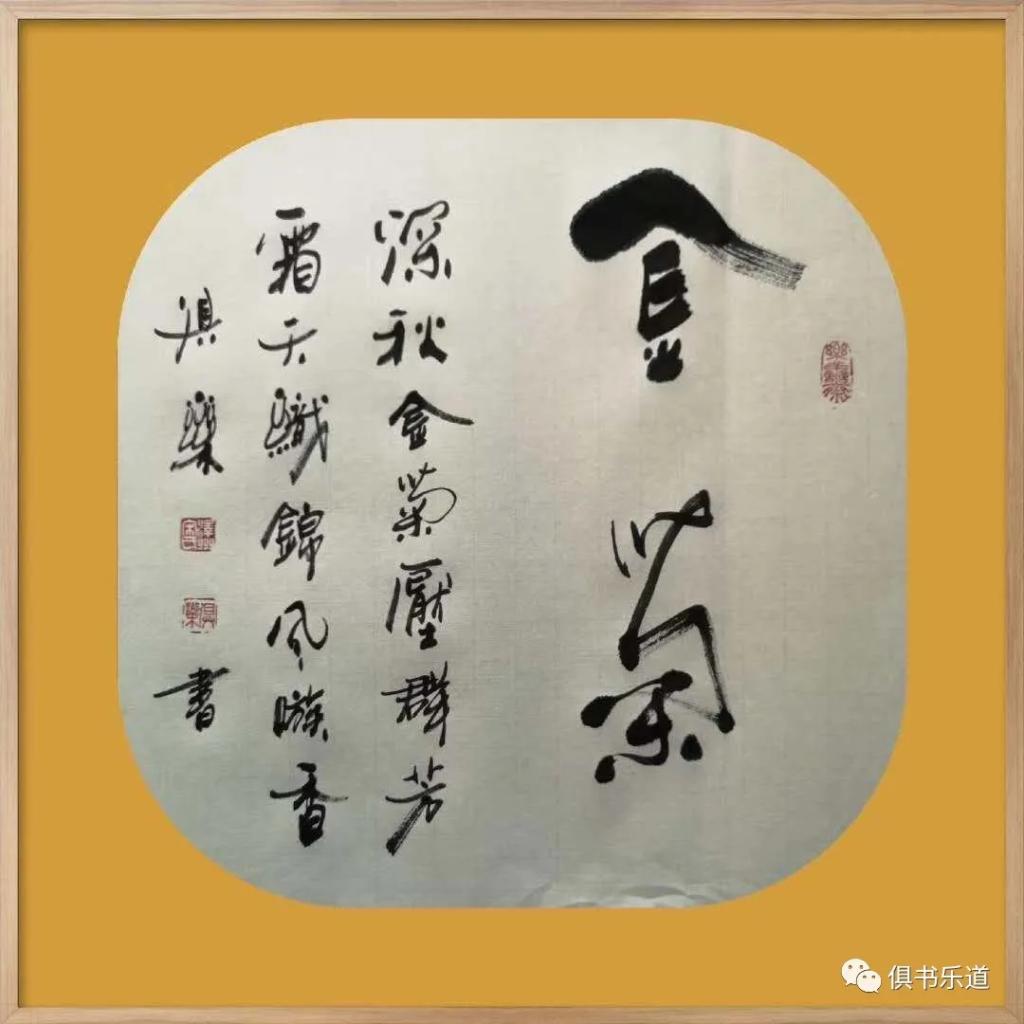 金菊
深秋金菊壓群芳
霜天織錦風嗾香
俱樂
書
俱书乐道